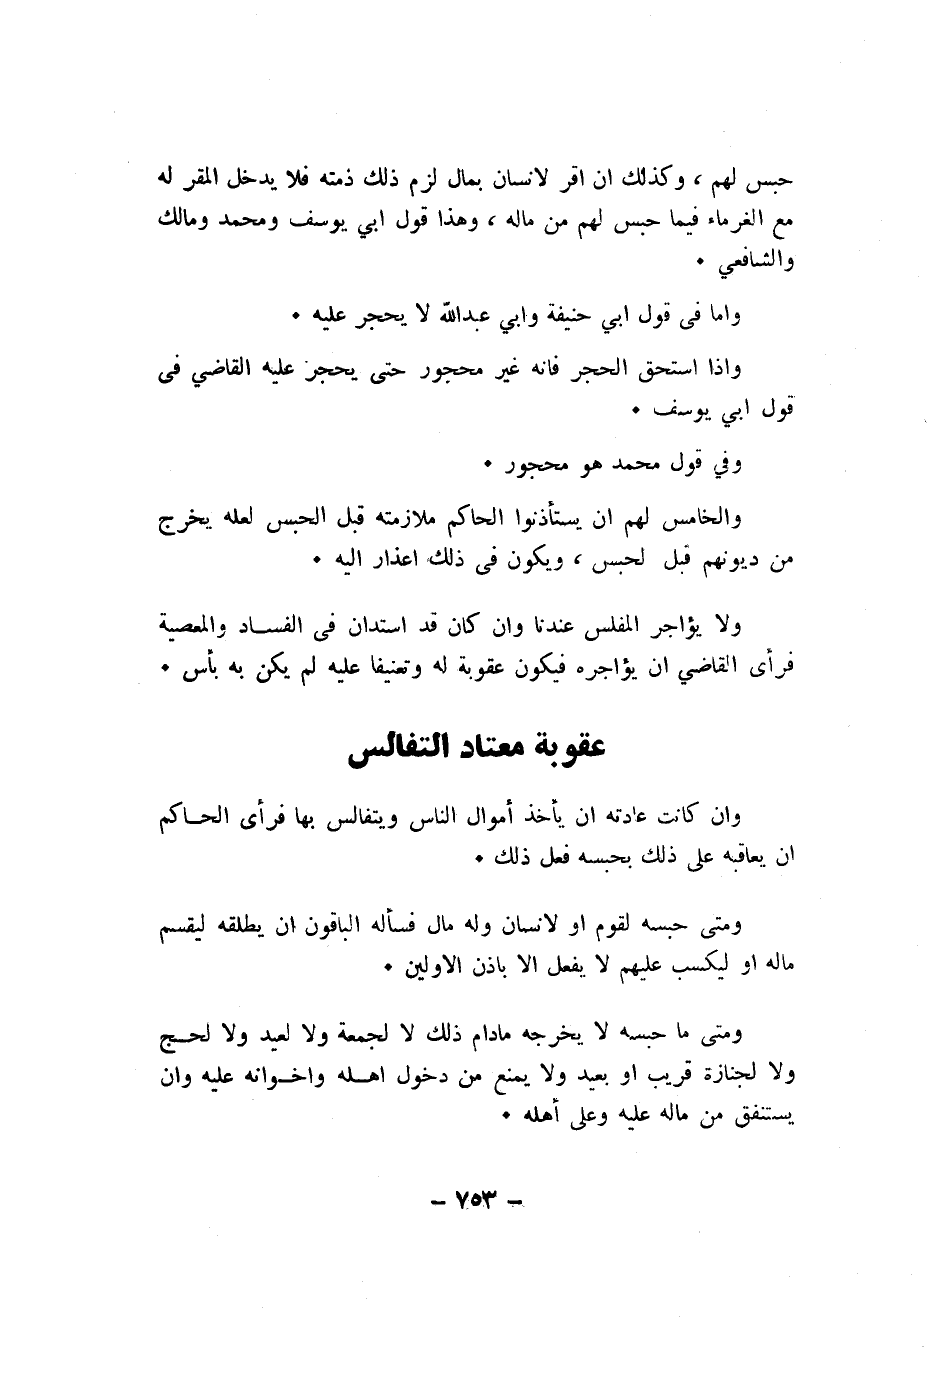 حبس لهم ، وكذلك ان اقر لانسان بمال لزم ذلك ذمته فلا يدخل المقر له
مع الغرماء فيما حبس لهم من ماله ، وهذا قول ابي يوسف ومحمد ومالك
والشافعي •
واما فى قول ابي حنيفة وابي عبدالله لا يحجر عليه •
واذا استحق الحجر فانه غير محجور حتى يحجر عليه القاضي فى
قول ابي يوسف •
وفي قول محمد هو محجور •
والخامس لهم ان يستأذنوا الحاكم ملازمته قبل الحبس لعله يخرج
من ديونهم قبل لحبس ، ويكون فى ذلك اعذار اليه •
ولا يؤاجر المفلس عندنا وان كان قد استدان فى الفساد والمعصية
فرأى القاضي ان يؤاجره فيكون عقوبة له وتعنيفا عليه لم يكن به بأس •
عقوبة معتاد التفالس
وان كانت عادته ان يأخذ أموال الناس ويتفالس بها فرأى الحاكم
ان يعاقبه على ذلك بحبسه فعل ذلك •
ومتى حبسه لقوم او لانسان وله مال فسأله الباقون ان يطلقه ليقسم
ماله او ليكسب عليهم لا يفعل الا باذن الاولين •
ومتى ما حبسه لا يخرجه مادام ذلك لا لجمعة ولا لعيد ولا لحج
ولا لجنازة قريب او بعيد ولا يمنع من دخول اهله واخوانه عليه وان
يستنفق من ماله عليه وعلى أهله •
– ٧٥٣ –